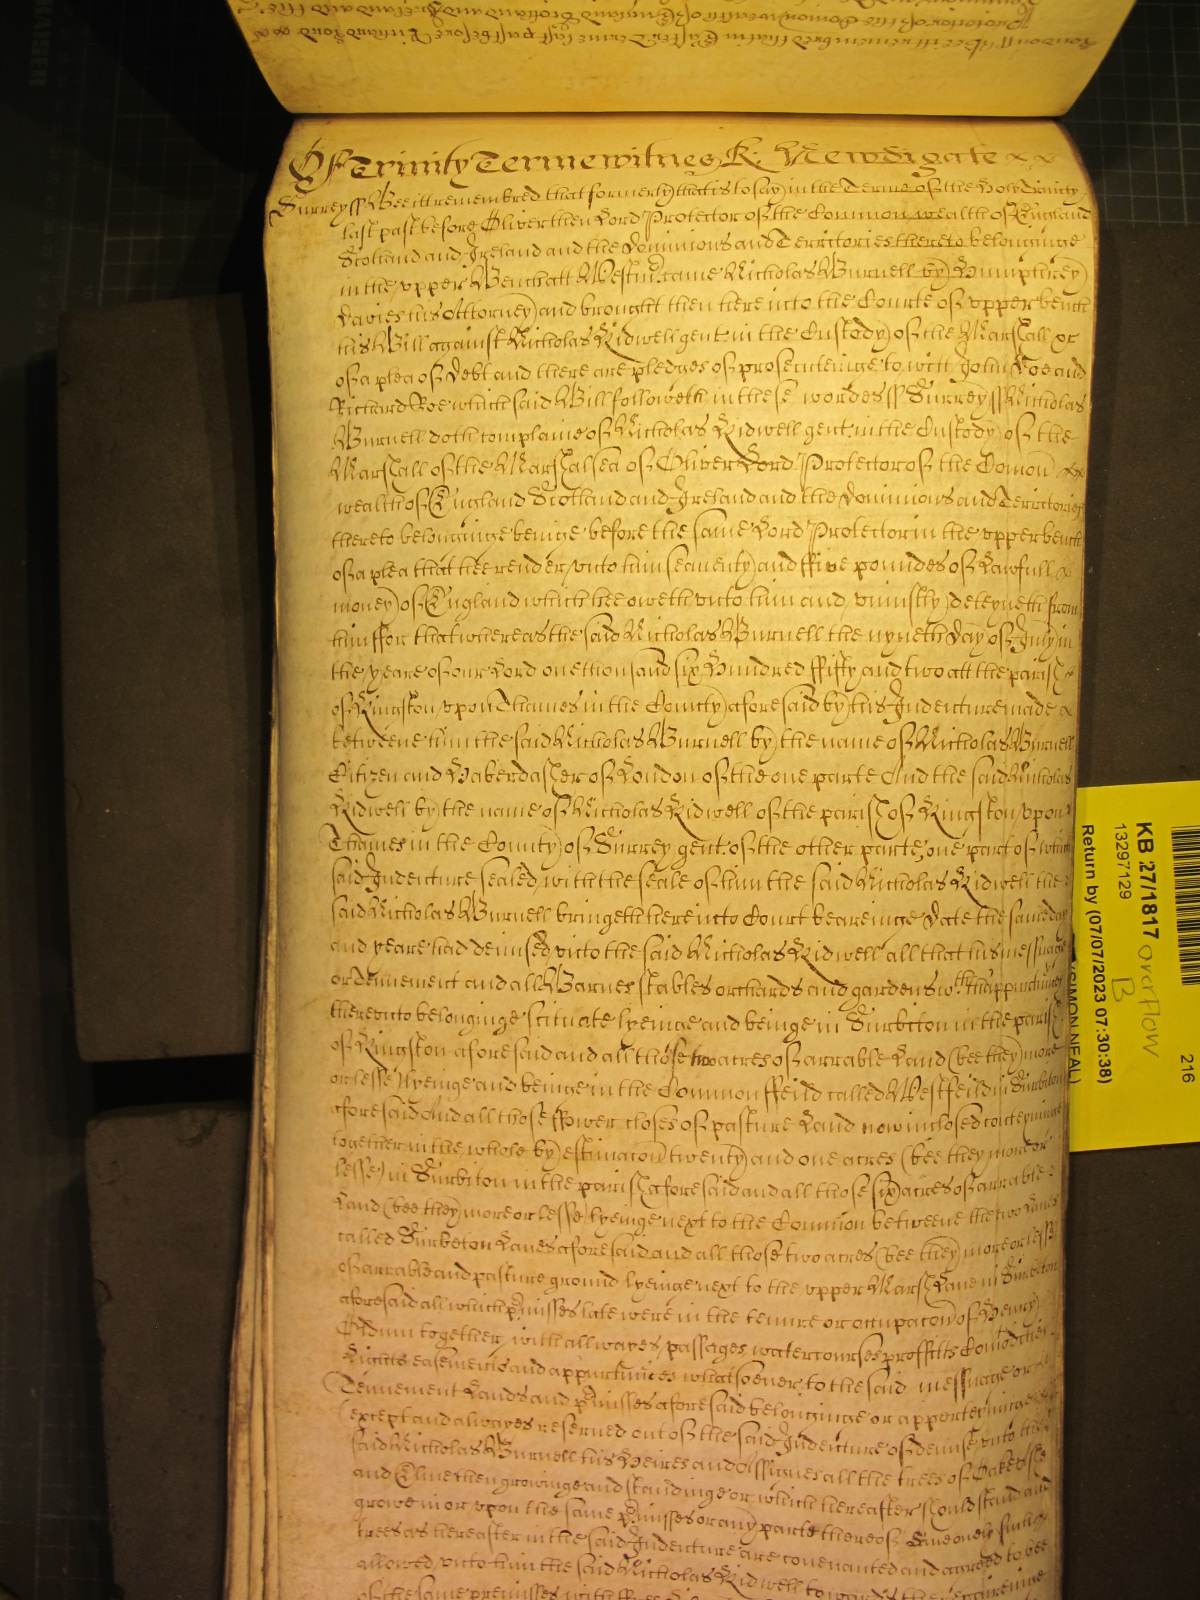 Of Trinity Terme witnes R: Newdigate x x
Surrey ss Bee itt remembred that formerly that is to say in the Terme of the Holy Trinity
last past before Oliver then Lord Protector of the Common wealth of England
Scotland and Ireland and the Dominions and Territories thereto belonginge
in the upper Bench att Westmr: came Nicholas Burnell by Humphrey
Davies his Attorney and brought then here into the Courte of upper bench
his Bill against Nicholas Lidwell gent: in the Custody of the Marshall &c
of a plea of Debt and there are pledges of prosecuteinge to witt John Doe and
Richard Roe which said Bill followeth in these wordes ss Surrey ss Nicholas
Burnell doth complaine of Nicholas Lidwell gent: in the Custody of the
Marshall of the Marshalsea of Oliver Lord Protector of the Comon xx
wealth of England Scotland and Ireland and the Dominions and Territories
thereto belonginge beinge before the same Lord Protector in the upper bench
of a plea that hee render unto him seaventy and ffive poundes of Lawfull x
money of England which hee oweth unto him and uniustly deteyneth from
him ffor that whereas the said Nicholas Burnell the nyneth day of July in
the yeare of our Lord one thousand six Hundred ffifty and two att the parish
of Kingston upon Thames in the County aforesaid by his Indenture made x
betweene him the said Nicholas Burnell by the name of Nicholas Burnell
Citizen and Haberdasher of London of the one parte And the said Nicholas
Lidwell by the name of Nicholas Lidwell of the parish of Kingston upon
Thames in the County of Surrey gent: of the other parte, one part of which
said Indenture sealed with the seale of him the said Nicholas Lidwell the
said Nicholas Burnell bringeth here into Court beareinge Date the same day
and yeare had demised unto the said Nicholas Lidwell all that his messuage
or Tennement and all Barnes stables orchards and gardens wth. thappurtnces
thereunto belonginge scituate lyeinge and beinge in Surbiton in the parish
of Kingston aforesaid and all those two acres of arrable Land (bee they more
or lesse) lyeinge and beinge in the Common ffeild called Westfeild in Surbiton
aforesaid And all those ffower closes of pasture Land now inclosed conteyninge
together in the whole by estimacon twenty and one acres (bee they more or
lesse) in Surbiton in the parish aforesaid and all those six acres of arrable
Land (bee they more or lesse) lyeinge next to the Common betweene the two Lanes
called Surbeton Lanes aforesaid and all those two acres (bee they more or lesse)
of arrable and pasture ground lyeinge next to the upper Marsh Lane in Surbiton
aforesaid all which p'misses late were in the tenure or occupacon of Henry
together with all wayes passages watercourses proffitts Comodities
Rights easements and appurtnces whatsoever to the said messuage or
Tennement Lands and p'misses aforesaid belonginge or apperteyninge
(except and alwayes reserved out of the said Indenture of demise unto the
said Nicholas Burnell his Heires and Assignes all the trees of Oake Ashe
and Elme then growinge and standinge or which hereafter should stand and
growe in or upon the same p'misses or any parte thereof Save onely such
trees as hereafter in the said Indenture are covenanted and agreed to bee
allowed unto him the said Nicholas Lidwell towards the repaireinge
of the same premisses
KB 27/1817 overflow
B
13297129
Return by (07/07/2023 07:30:38)
(SIMON NEAL)
216